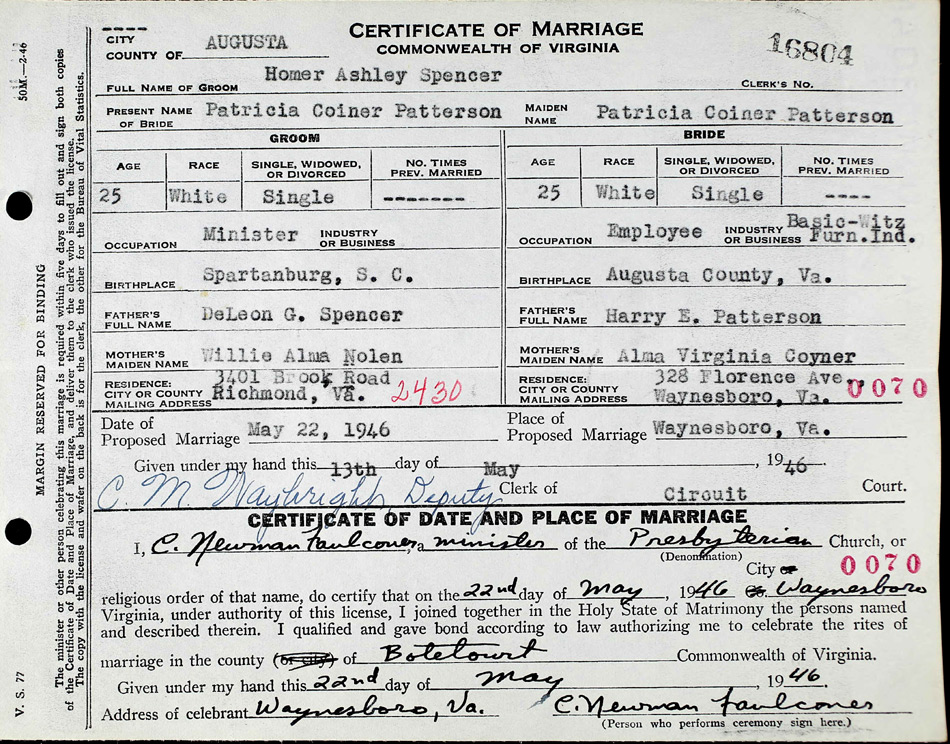 CERTIFICATE OF MARRIAGE
COMMONWEALTH OF VIRGINIA
----
CITY
COUNTY OF AUGUSTA
16804
CLERK'S NO.
FULL NAME OF GROOM Homer Ashley Spencer
PRESENT NAME OF BRIDE Patricia Coiner Patterson MAIDEN NAME Patricia Coiner Patterson
GROOM BRIDE
AGE RACE SINGLE, WIDOWED, OR DIVORCED NO. TIMES PREV. MARRIED AGE RACE SINGLE, WIDOWED, OR DIVORCED NO. TIMES PREV. MARRIED
25 White Single ------- 25 White Single ----
OCCUPATION Minister INDUSTRY OR BUSINESS OCCUPATION Employee INDUSTRY OR BUSINESS Basic-Witz Furn.Ind.
BIRTHPLACE Spartanburg, S. C. BIRTHPLACE Augusta County, Va.
FATHER'S FULL NAME DeLeon G. Spencer FATHER'S FULL NAME Harry E. Patterson
MOTHER'S MAIDEN NAME Willie Alma Nolen MOTHER'S MAIDEN NAME Alma Virginia Coyner
RESIDENCE: CITY OR COUNTY MAILING ADDRESS 3401 Brook Road Richmond, Va. 2430 RESIDENCE: CITY OR COUNTY MAILING ADDRESS 328 Florence Ave., Waynesboro, Va. 0070
Date of Proposed Marriage May 22, 1946 Place of Proposed Marriage Waynesboro, Va.
Given under my hand this 13th day of May, 1946
C. M. Waybright, Deputy Clerk of Circuit Court.
CERTIFICATE OF DATE AND PLACE OF MARRIAGE
I, C. Newman Faulconer, a minister of the Presbyterian Church, or
(Denomination)
City or 0070
religious order of that name, do certify that on the 22nd day of May, 1946 Waynesboro
Virginia, under authority of this license, I joined together in the Holy State of Matrimony the persons named
and described therein. I qualified and gave bond according to law authorizing me to celebrate the rites of
marriage in the county (or city) of Botetourt Commonwealth of Virginia.
Given under my hand this 22nd day of May, 1946.
Address of celebrant Waynesboro, Va. C. Newman Faulconer
(Person who performs ceremony sign here.)
50M.—2-46
V. S. 77
MARGIN RESERVED FOR BINDING
The minister or other person celebrating this marriage is required within five days to fill out and sign both copies
of the Certificate of Date and Place of Marriage, and deliver them to the clerk who issued the license.
The copy with the license and wafer on the back is for the clerk, the other for the Bureau of Vital Statistics.